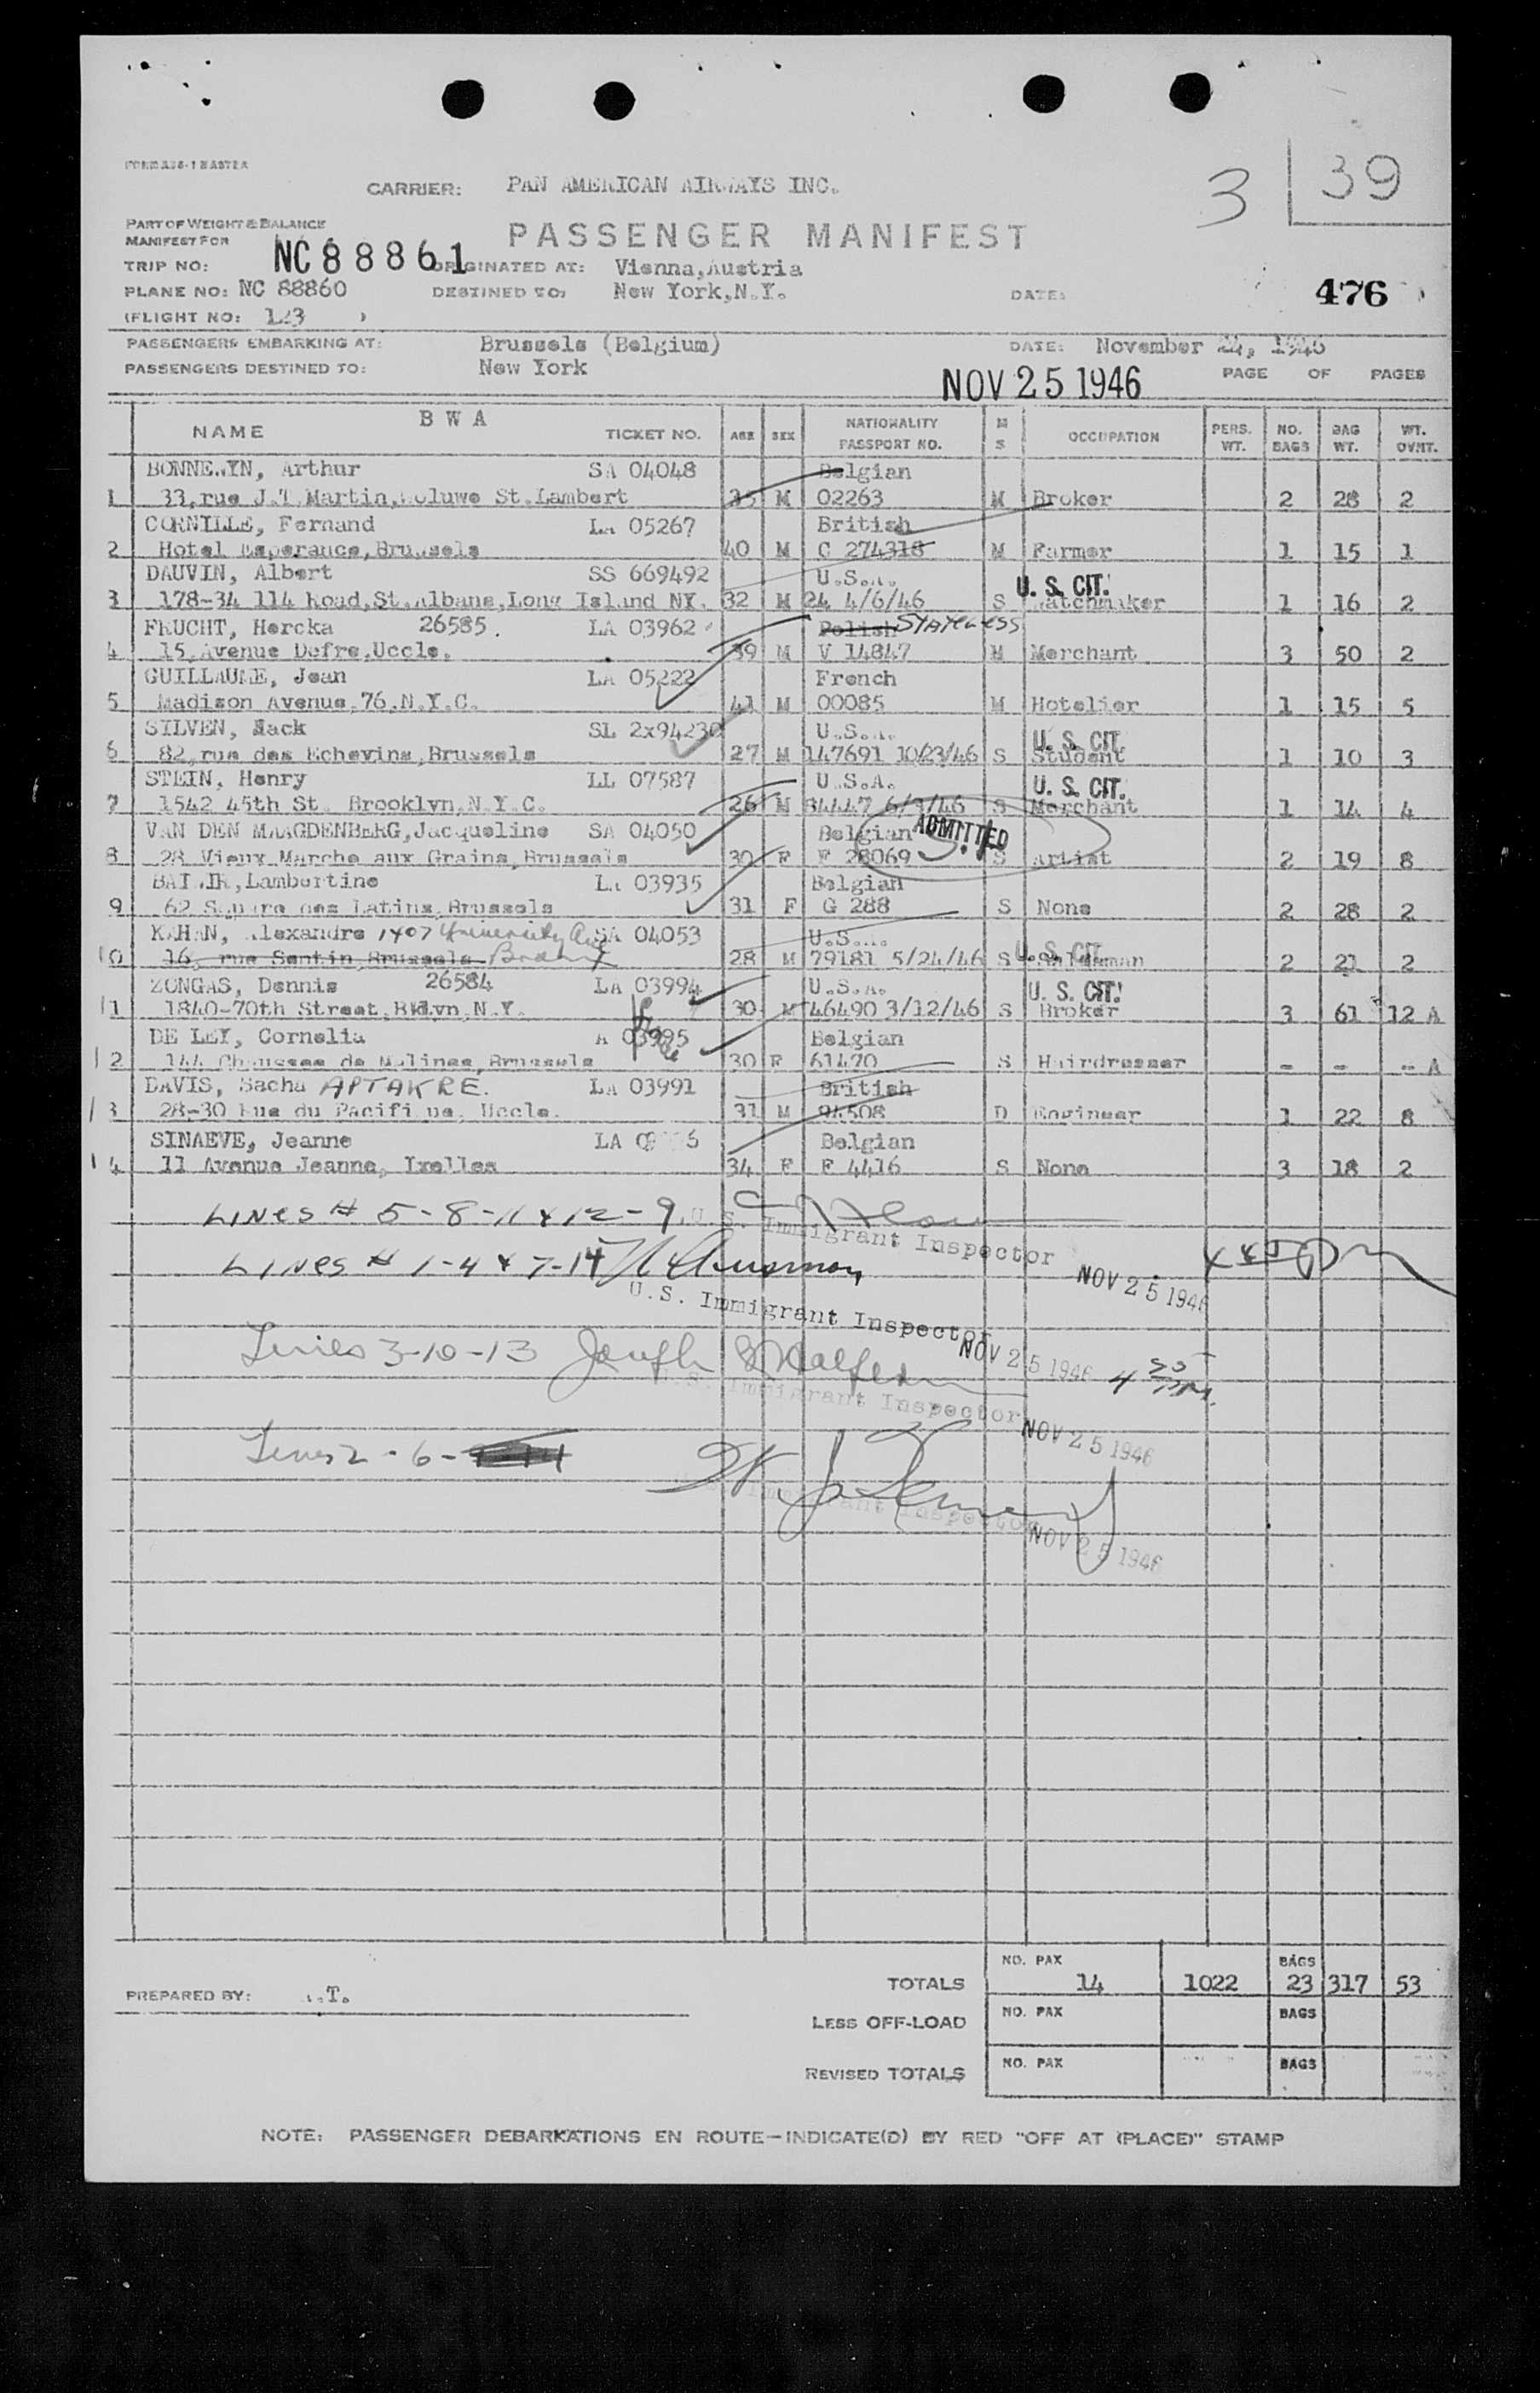 FORM A38-1 MASTER
3 39
CARRIER: PAN AMERICAN AIRWAYS INC.
PART OF WEIGHT & BALANCE
MANIFEST FOR
PASSENGER MANIFEST
TRIP NO: NC88861 ORIGINATED AT: Vienna,Austria
PLANE NO: NC 88860 DESTINED TO: New York,N.Y. DATE: 476
(FLIGHT NO: )
PASSENGERS EMBARKING AT: Brussels (Belgium) DATE: November 24, 1946
PASSENGERS DESTINED TO: New York NOV 25 1946 PAGE OF PAGES
B W A
NAME TICKET NO. AGE SEX NATIONALITY PASSPORT NO. M S OCCUPATION PERS. WT. NO. BAGS BAG WT. WT. OVHT.
BONNEWYN, Arthur SA 04048 Belgian
1 33,rue J.T.Martin,Woluwe St.Lambert 35 M 02263 M Broker 2 28 2
CORNILLE, Fernand LA 05267 British
2 Hotel Esperance,Brussels 40 M C 274318 M Farmer 1 15 1
DAUVIN, Albert SS 669492 U.S.A. U. S. CIT.
3 178-34 114 Road,St.Albans,Long Island NY. 32 M 24 4/6/46 S Watchmaker 1 16 2
FRUCHT, Hercka 26585. LA 03962 Polish STATELESS
4 15,Avenue Defre,Uccle. 39 M V 14847 M Merchant 3 50 2
GUILLAUME, Jean LA 05222 French
5 Madison Avenue,76,N.Y.C. 41 M 00085 M Hotelier 1 15 5
SILVEN, Jack SL 2x94230 U.S.A. U. S. CIT.
6 82,rue des Echevins,Brussels 27 M 147691 10/23/46 S Student 1 10 3
STEIN, Henry LL 07587 U.S.A. U. S. CIT.
7 1542 45th St. Brooklyn,N.Y.C. 26 M 84447 6/3/46 S Merchant 1 14 4
VAN DEN MAAGDENBERG,Jacqueline SA 04050 Belgian ADMITTED
8 28 Vieux Marche aux Grains,Brussels 30 F F 28069 S Artist 2 19 8
Lambertine LA 03935 Belgian
9 62 Square des Latins,Brussels 31 F G 288 S None 2 28 2
KAHAN, Alexandre 1407 University Ave SA 04053 U.S.A. U. S. CIT.
10 16, rue Santin,Brussels Bronx 28 M 79181 5/24/46 S Salesman 2 21 2
ZONGAS, Dennis 26584 LA 03994 U.S.A. U. S. CIT.
11 1840-70th Street,Bklyn,N.Y. 30 M 46490 3/12/46 S Broker 3 61 12 A
DE LEY, Cornelia A 03995 Belgian
12 144 Chaussee de Malines,Brussels 30 F 61470 S Hairdresser - - - A
DAVIS, Sacha APTAKRE. LA 03991 British
13 28-30 Rue du Pacifique, Uccle. 31 M 94508 D Engineer 1 22 8
SINAEVE, Jeanne LA Belgian
14 11 Avenue Jeanne, Ixelles 34 F F 4416 S None 3 18 2
LINES # 5-8-11 & 12-9.
U.S. Immigrant Inspector
LINES # 1-4 & 7-14 NOV 25 1946
U.S. Immigrant Inspector
Lines 3-10-13 Joseph NOV 25 1946 4 PM.
U.S. Immigrant Inspector
NOV 25 1946
Lines 2-6-
Immigrant Inspector
NOV 25 1946
PREPARED BY: .T.
TOTALS NO. PAX 14 1022 BAGS 23 317 53
LESS OFF-LOAD NO. PAX BAGS
REVISED TOTALS NO. PAX BAGS
NOTE: PASSENGER DEBARKATIONS EN ROUTE—INDICATE(D) BY RED "OFF AT (PLACE)" STAMP